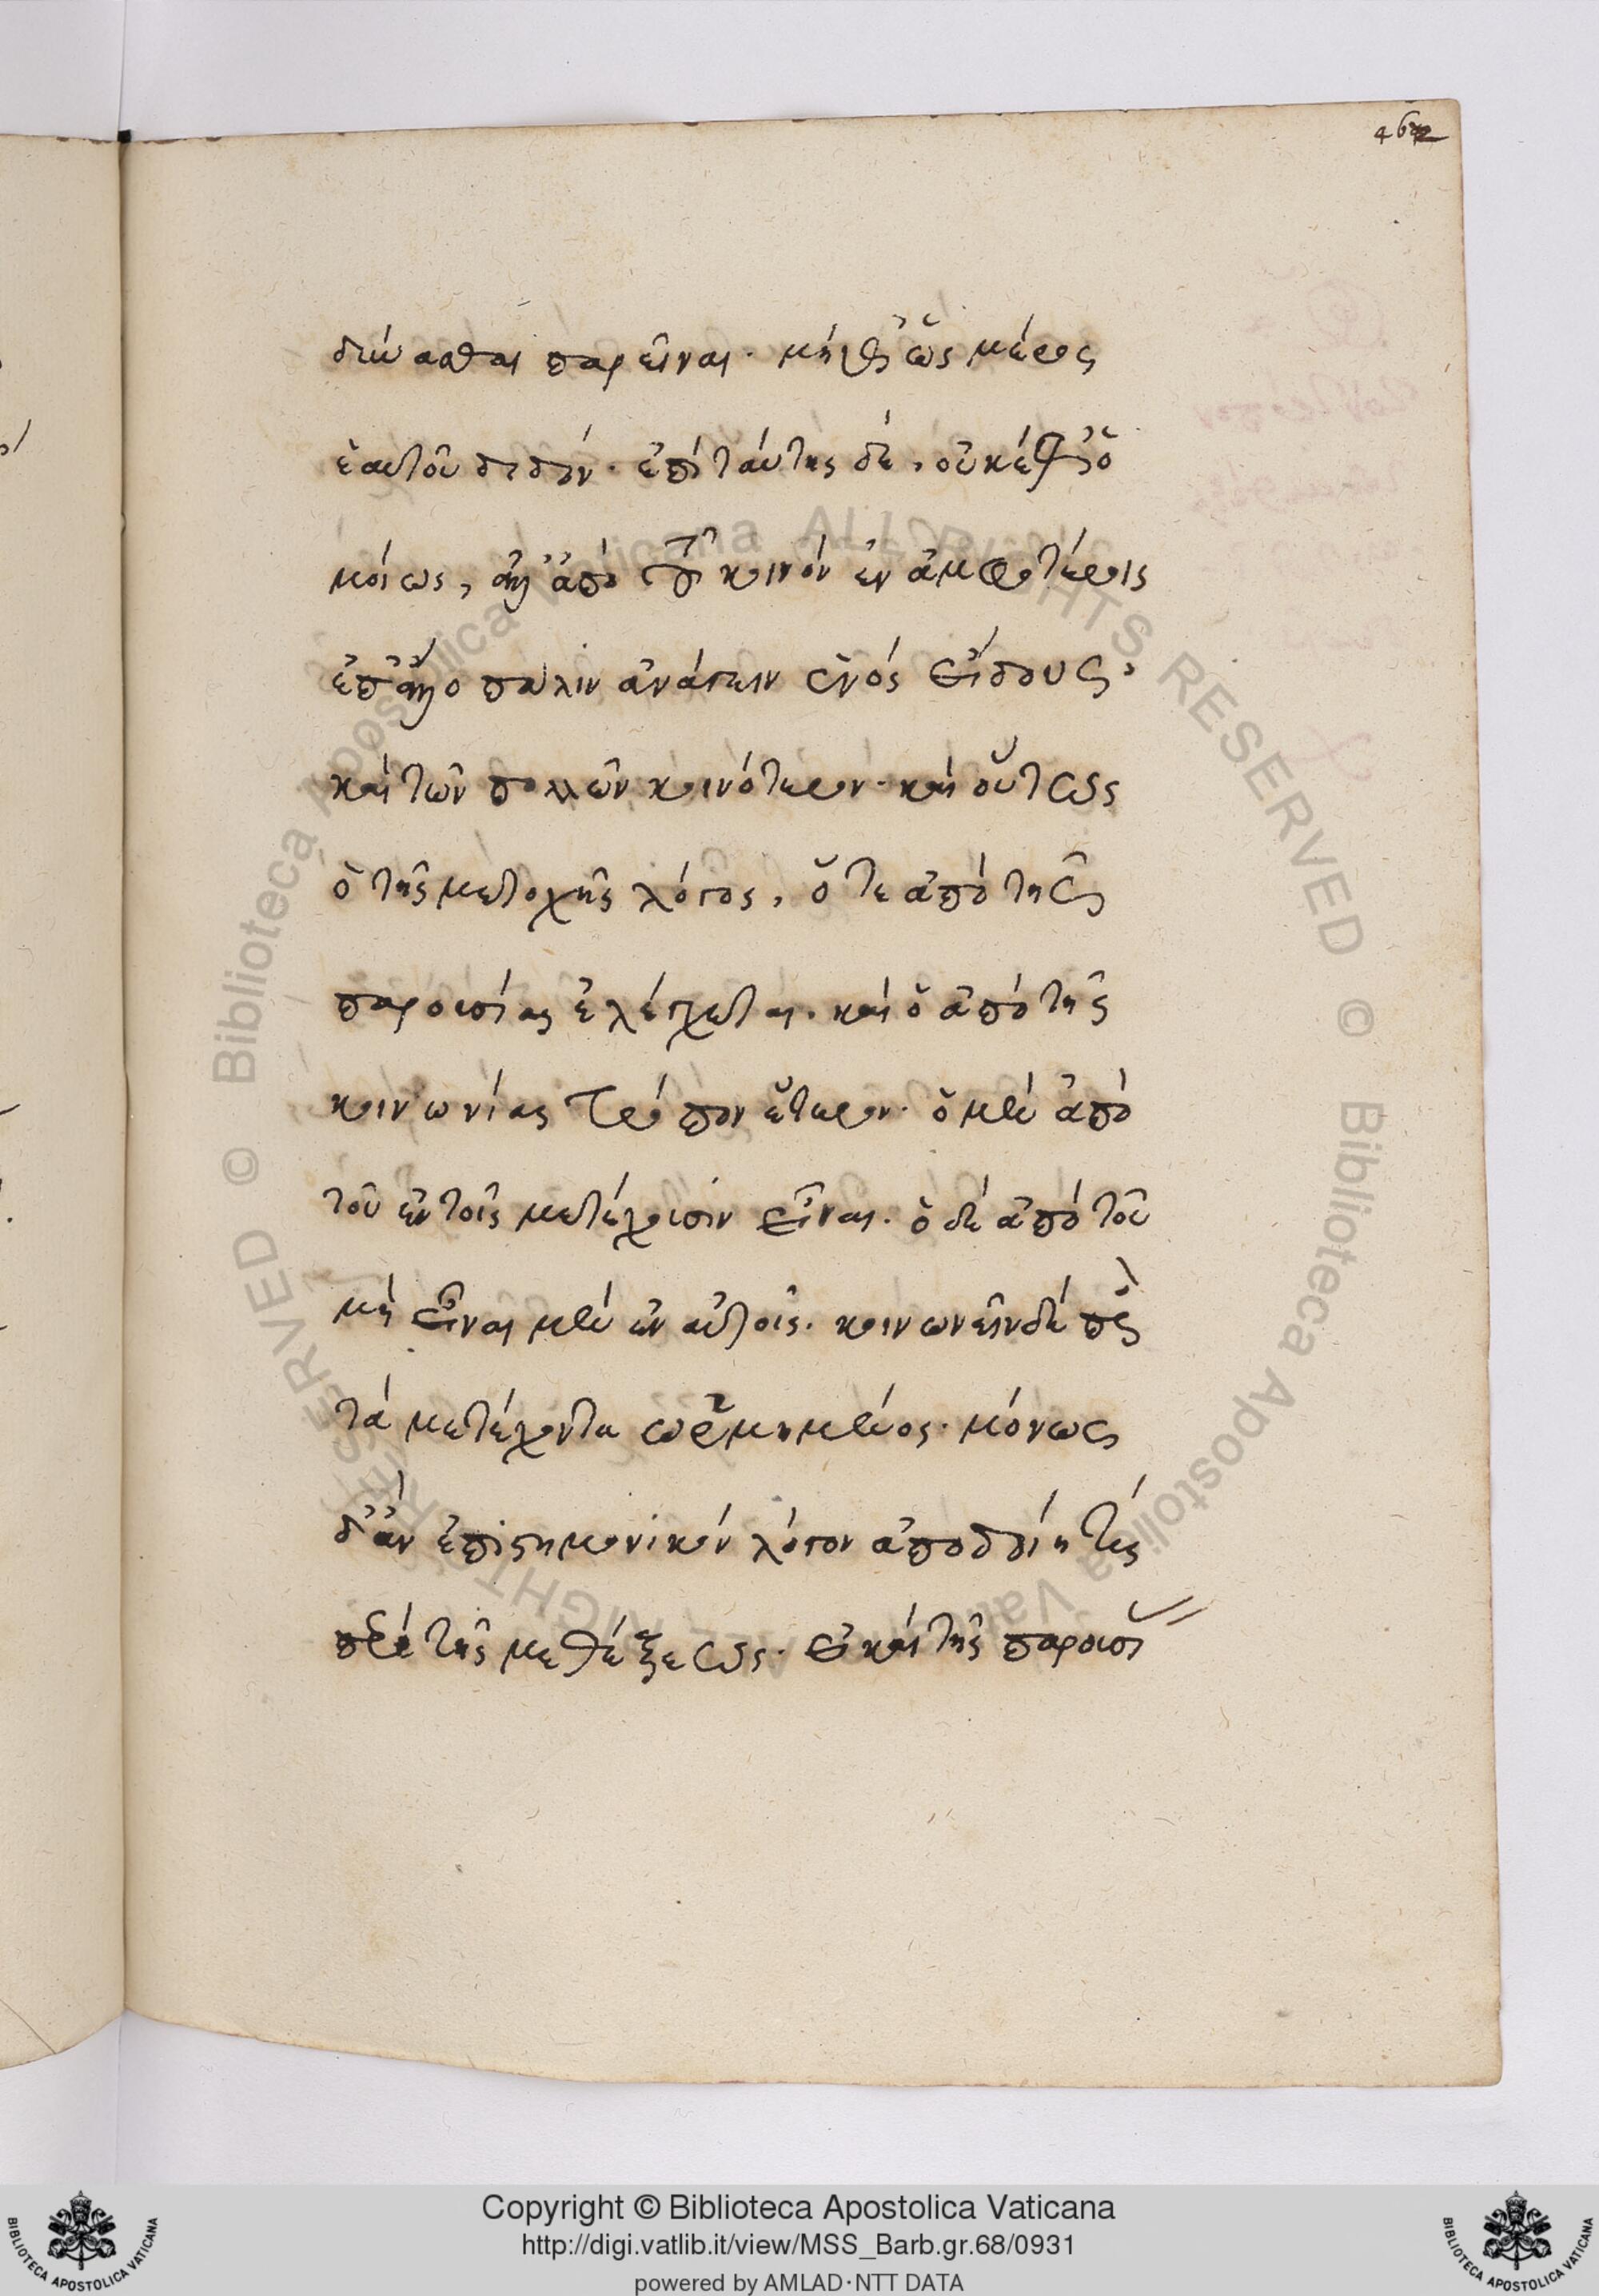 462
δύνασθαι παρεῖναι. μήθ' ὡς μέρος
ἑαυτοῦ διδόν. ἐπὶ ταύτης δὲ, οὐκέθ' ὁ
μοίως, ἀλλ' ἀπὸ τοῦ κοινὸν ἐν ἀμφοτέροις
ἐπ' ἄλλο πάλιν ἀνάγειν ἑνὸς εἴδους,
καὶ τῶν πολλῶν κοινότερον. καὶ οὕτως
ὁ τῆς μετοχῆς λόγος, ὅ τε ἀπὸ τῆς
παρουσίας ἐλέγχεται. καὶ ὁ ἀπὸ τῆς
κοινωνίας τρόπον ἕτερον. ὁ μὲν ἀπὸ
τοῦ ἐν τοῖς μετέχουσιν εἶναι. ὁ δὲ ἀπὸ τοῦ
μὴ εἶναι μὲν ἐν αὐτοῖς. κοινωνεῖν δὲ πρὸς
τὰ μετέχοντα ὡρμημένος. μόνως
δ' ἂν ἐπιστημονικὸν λόγον ἀποδοίη τις
περὶ τῆς μεθέξεως. εἰ καὶ τῆς παρουσί
Copyright © Biblioteca Apostolica Vaticana
http://digi.vatlib.it/view/MSS_Barb.gr.68/0931
powered by AMLAD·NTT DATA
BIBLIOTECA APOSTOLICA VATICANA
BIBLIOTECA APOSTOLICA VATICANA